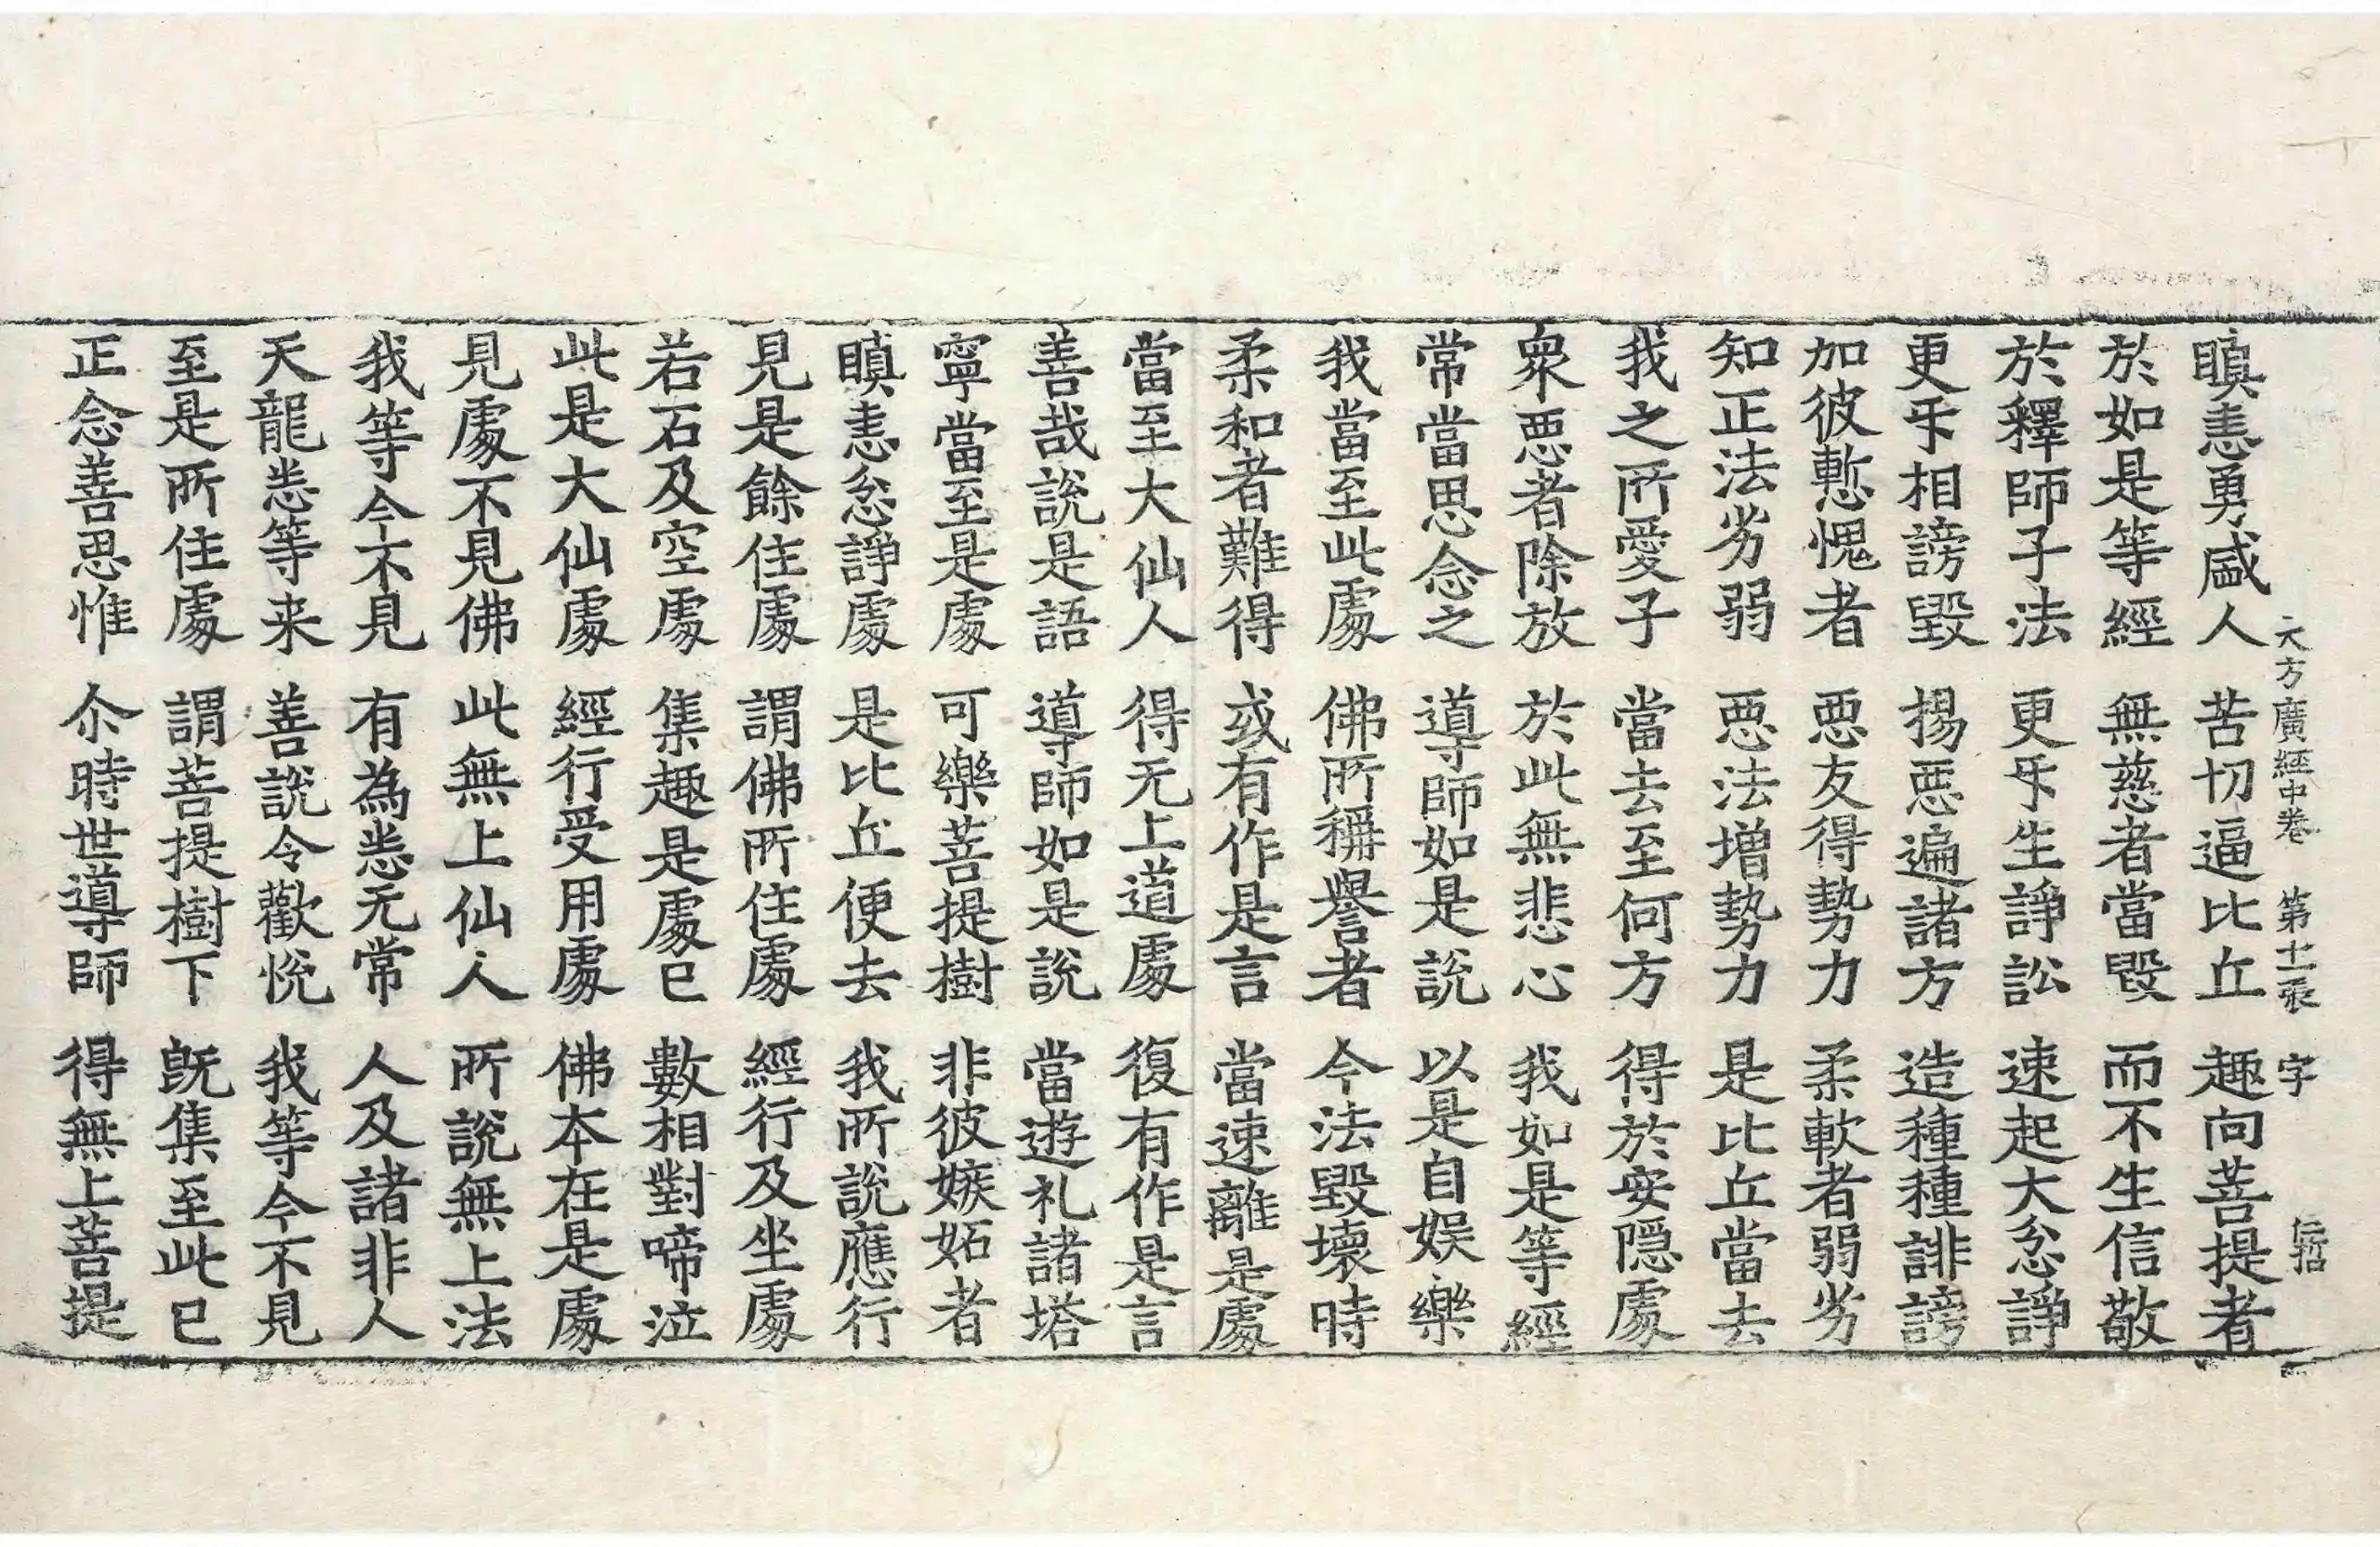 大方廣經中卷　第十二張　字
瞋恚勇盛人　苦切逼比丘　趣向菩提者
於如是等經　無慈者當毀　而不生信敬
於釋師子法　更㸦生諍訟　速起大忿諍
更㸦相謗毀　揚惡遍諸方　造種種誹謗
加彼慙愧者　惡友得勢力　柔軟者弱劣
知正法劣弱　惡法增勢力　是比丘當去
我之所愛子　當去至何方　得於安隱處
衆惡者除放　於此無悲心　我如是等經
常當思念之　導師如是說　以是自娛樂
我當至此處　佛所稱譽者　今法毀壞時
柔和者難得　或有作是言　當速離是處
當至大仙人　得无上道處　復有作是言
善哉說是語　導師如是說　當遊礼諸塔
寧當至是處　可樂菩提樹　非彼嫉妬者
瞋恚忿諍處　是比丘便去　我所說應行
見是餘住處　謂佛所住處　經行及坐處
若石及空處　集趣是處已　數相對啼泣
此是大仙處　經行受用處　佛本在是處
見處不見佛　此無上仙人　所說無上法
我等今不見　有為恙无常　人及諸非人
天龍恙等来　善說令歡悅　我等今不見
至是所住處　謂菩提樹下　旣集至此已
正念善思惟　尒時世導師　得無上菩提